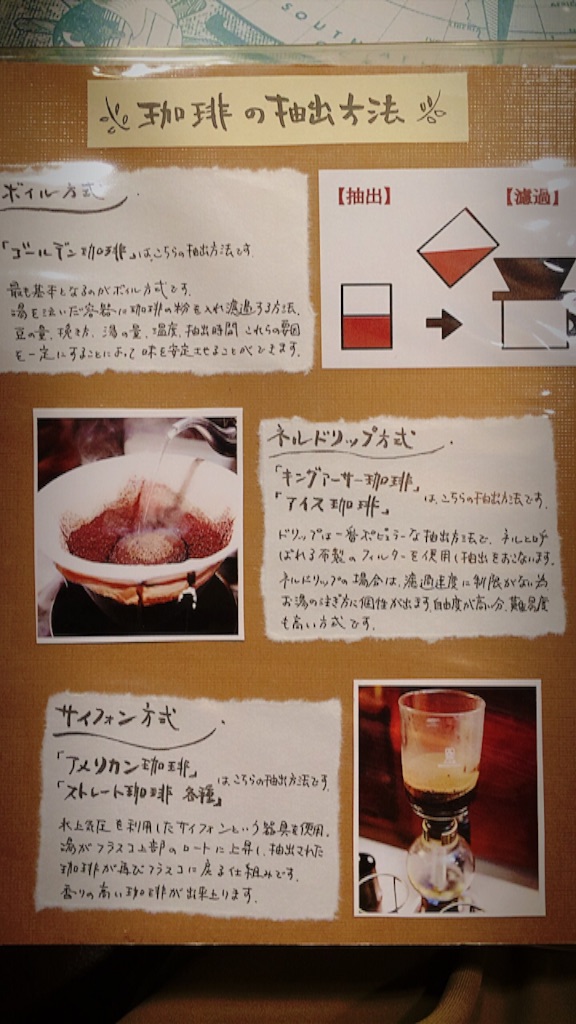 珈琲の抽出方法
ボイル方式
「ゴールデン珈琲」は、こちらの抽出方法です。
最も基本となるのがボイル方式です。
湯を注いだ容器に珈琲の粉を入れ濾過する方法。
豆の量、挽き方、湯の量、温度、抽出時間これらの要因
を一定にすることによって味を安定させることができます。
【抽出】
【濾過】
ネルドリップ方式
「キングアーサー珈琲」
「アイス珈琲」
は、こちらの抽出方法です。
ドリップは一番ポピュラーな抽出方法で、ネルと呼
ばれる布製のフィルターを使用し抽出をおこないます。
ネルドリップの場合は、濾過速度に制限がない為
お湯の注ぎ方に個性が出ます。自由度が高い分、難易度
も高い方式です。
サイフォン方式
「アメリカン珈琲」
「ストレート珈琲 各種」
は、こちらの抽出方法です。
水蒸気圧を利用したサイフォンという器具を使用。
湯がフラスコ上部のロートに上昇し、抽出された
珈琲が再びフラスコに戻る仕組みです。
香りの高い珈琲が出来上ります。